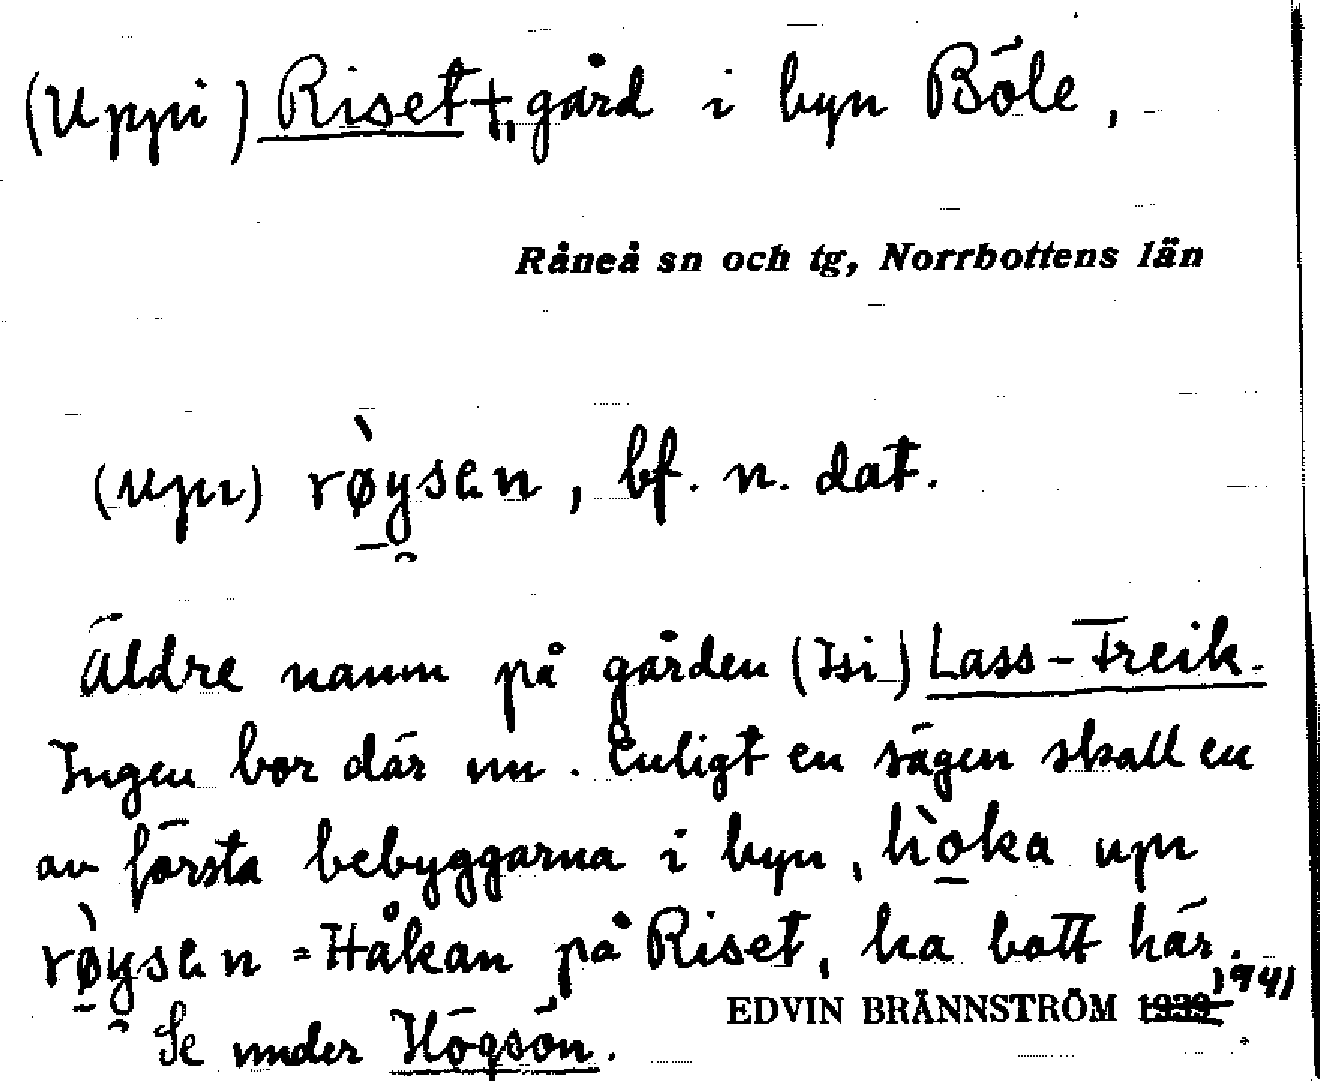 (Uppi) Riset +, gård i byn Böle,
Råneå sn och tg, Norrbottens län
(upi) rø̀ysen, bf. n. dat.
Äldre namn på gården (Isi) Lass-Freik.
Ingen bor där nu. Enligt en sägen skall en
av första bebyggarna i byn, hòka upi
rø̀ysen = Håkan på Riset, ha bott här.
EDVIN BRÄNNSTRÖM 1939 1941
Se under Högsön.